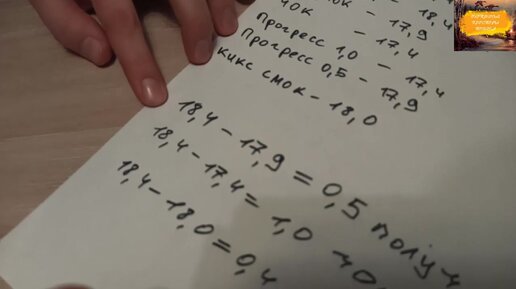 - 18,4
- 17,9
- 17,4
Прогресс 1,0 - 17,4
Прогресс 0,5 - 17,9
Кикс смок - 18,0
18,4 - 17,9 = 0,5
18,4 - 17,4 = 1,0
18,4 - 18,0 = 0,4